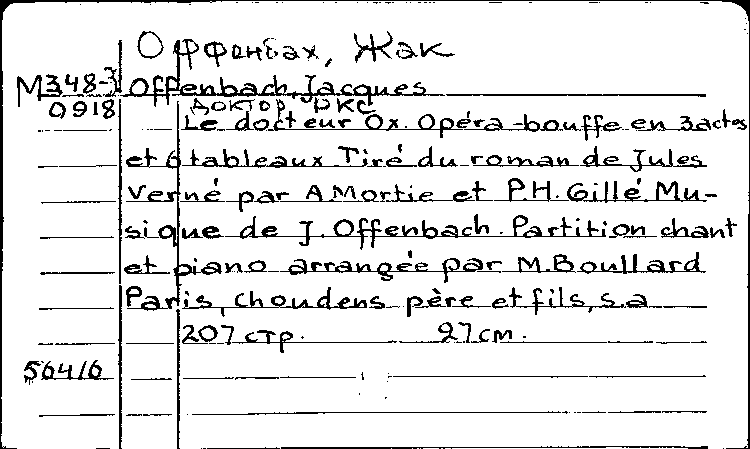 Оффенбах, Жак
М348-3 Offenbach, Jacques
0918 Доктор Окс
Le docteur Ox. Opéra-bouffe en 3 actes
et 6 tableaux Tiré du roman de Jules
Verne par A. Mortie et P.H. Gille. Mu-
sique de J. Offenbach. Partition chant
et piano arrangée par M. Boullard
Paris, Choudens père et fils, s.a
207 стр. 27 см.
56416